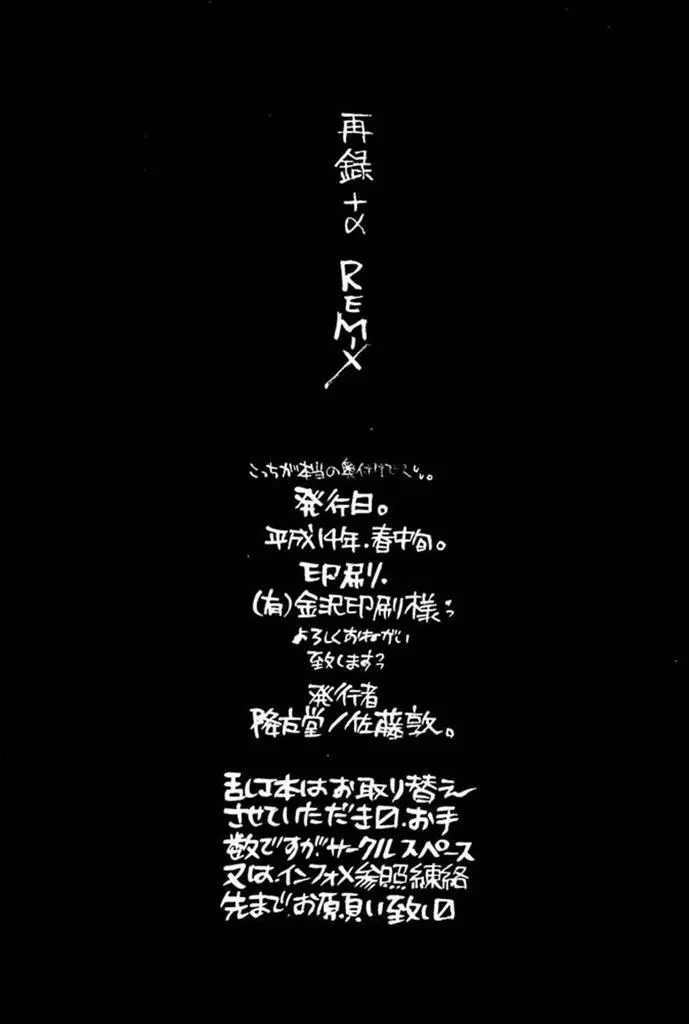 再録+α REMIX
こっちが本当の奥付けでく い。
発行日。
平成14年.春中旬。
印刷.
(有)金沢印刷様っ
よろしくおねがい
致しますっ
発行者
降方堂/佐藤敦。
乱丁本はお取り替え
させていただき〼.お手
数ですが.サークルスペース
又は.インフォメ参照練絡
先まで.お願い致し〼